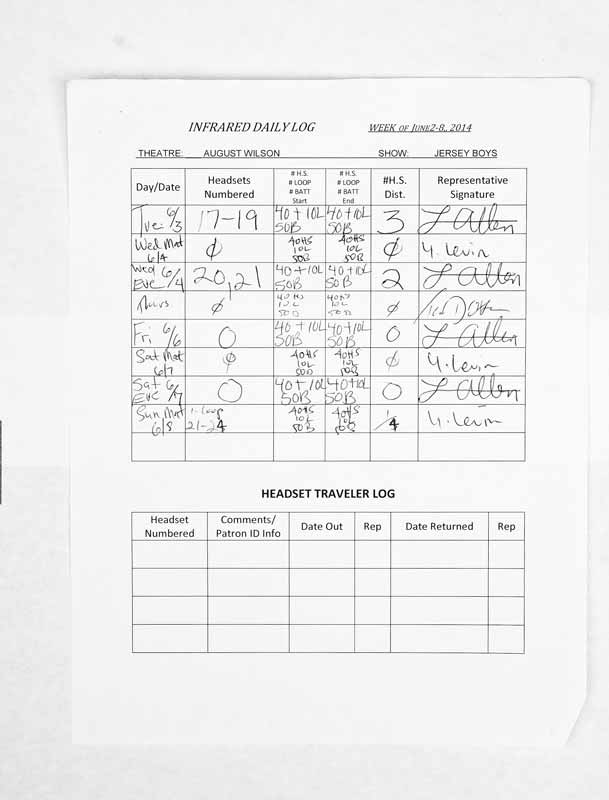 INFRARED DAILY LOG WEEK OF JUNE2-8, 2014
THEATRE: AUGUST WILSON SHOW: JERSEY BOYS
Day/Date Headsets Numbered # H.S. # LOOP # BATT Start # H.S. # LOOP # BATT End #H.S. Dist. Representative Signature
Tue 6/3 17-19 40+10L 50B 40+10L 50B 3 L Allen
Wed Mat 6/4 Ø 40HS 10L 50B 40HS 10L 50B Ø Y. Levin
Wed Eve 6/4 20,21 40+10L 50B 40+10L 50B 2 L Allen
Thurs Ø 40HS 10L 50B 40HS 10L 50B Ø
Fri 6/6 0 40+10L 50B 40+10L 50B 0 L Allen
Sat Mat 6/7 Ø 40HS 10L 50B 40HS 10L 50B Ø Y. Levin
Sat Eve 6/7 0 40+10L 50B 40+10L 50B 0 L Allen
Sun Mat 6/8 1-Loop 21-24 40HS 10L 50B 40HS 10L 50B 1/4 Y. Levin
HEADSET TRAVELER LOG
Headset Numbered Comments/ Patron ID Info Date Out Rep Date Returned Rep